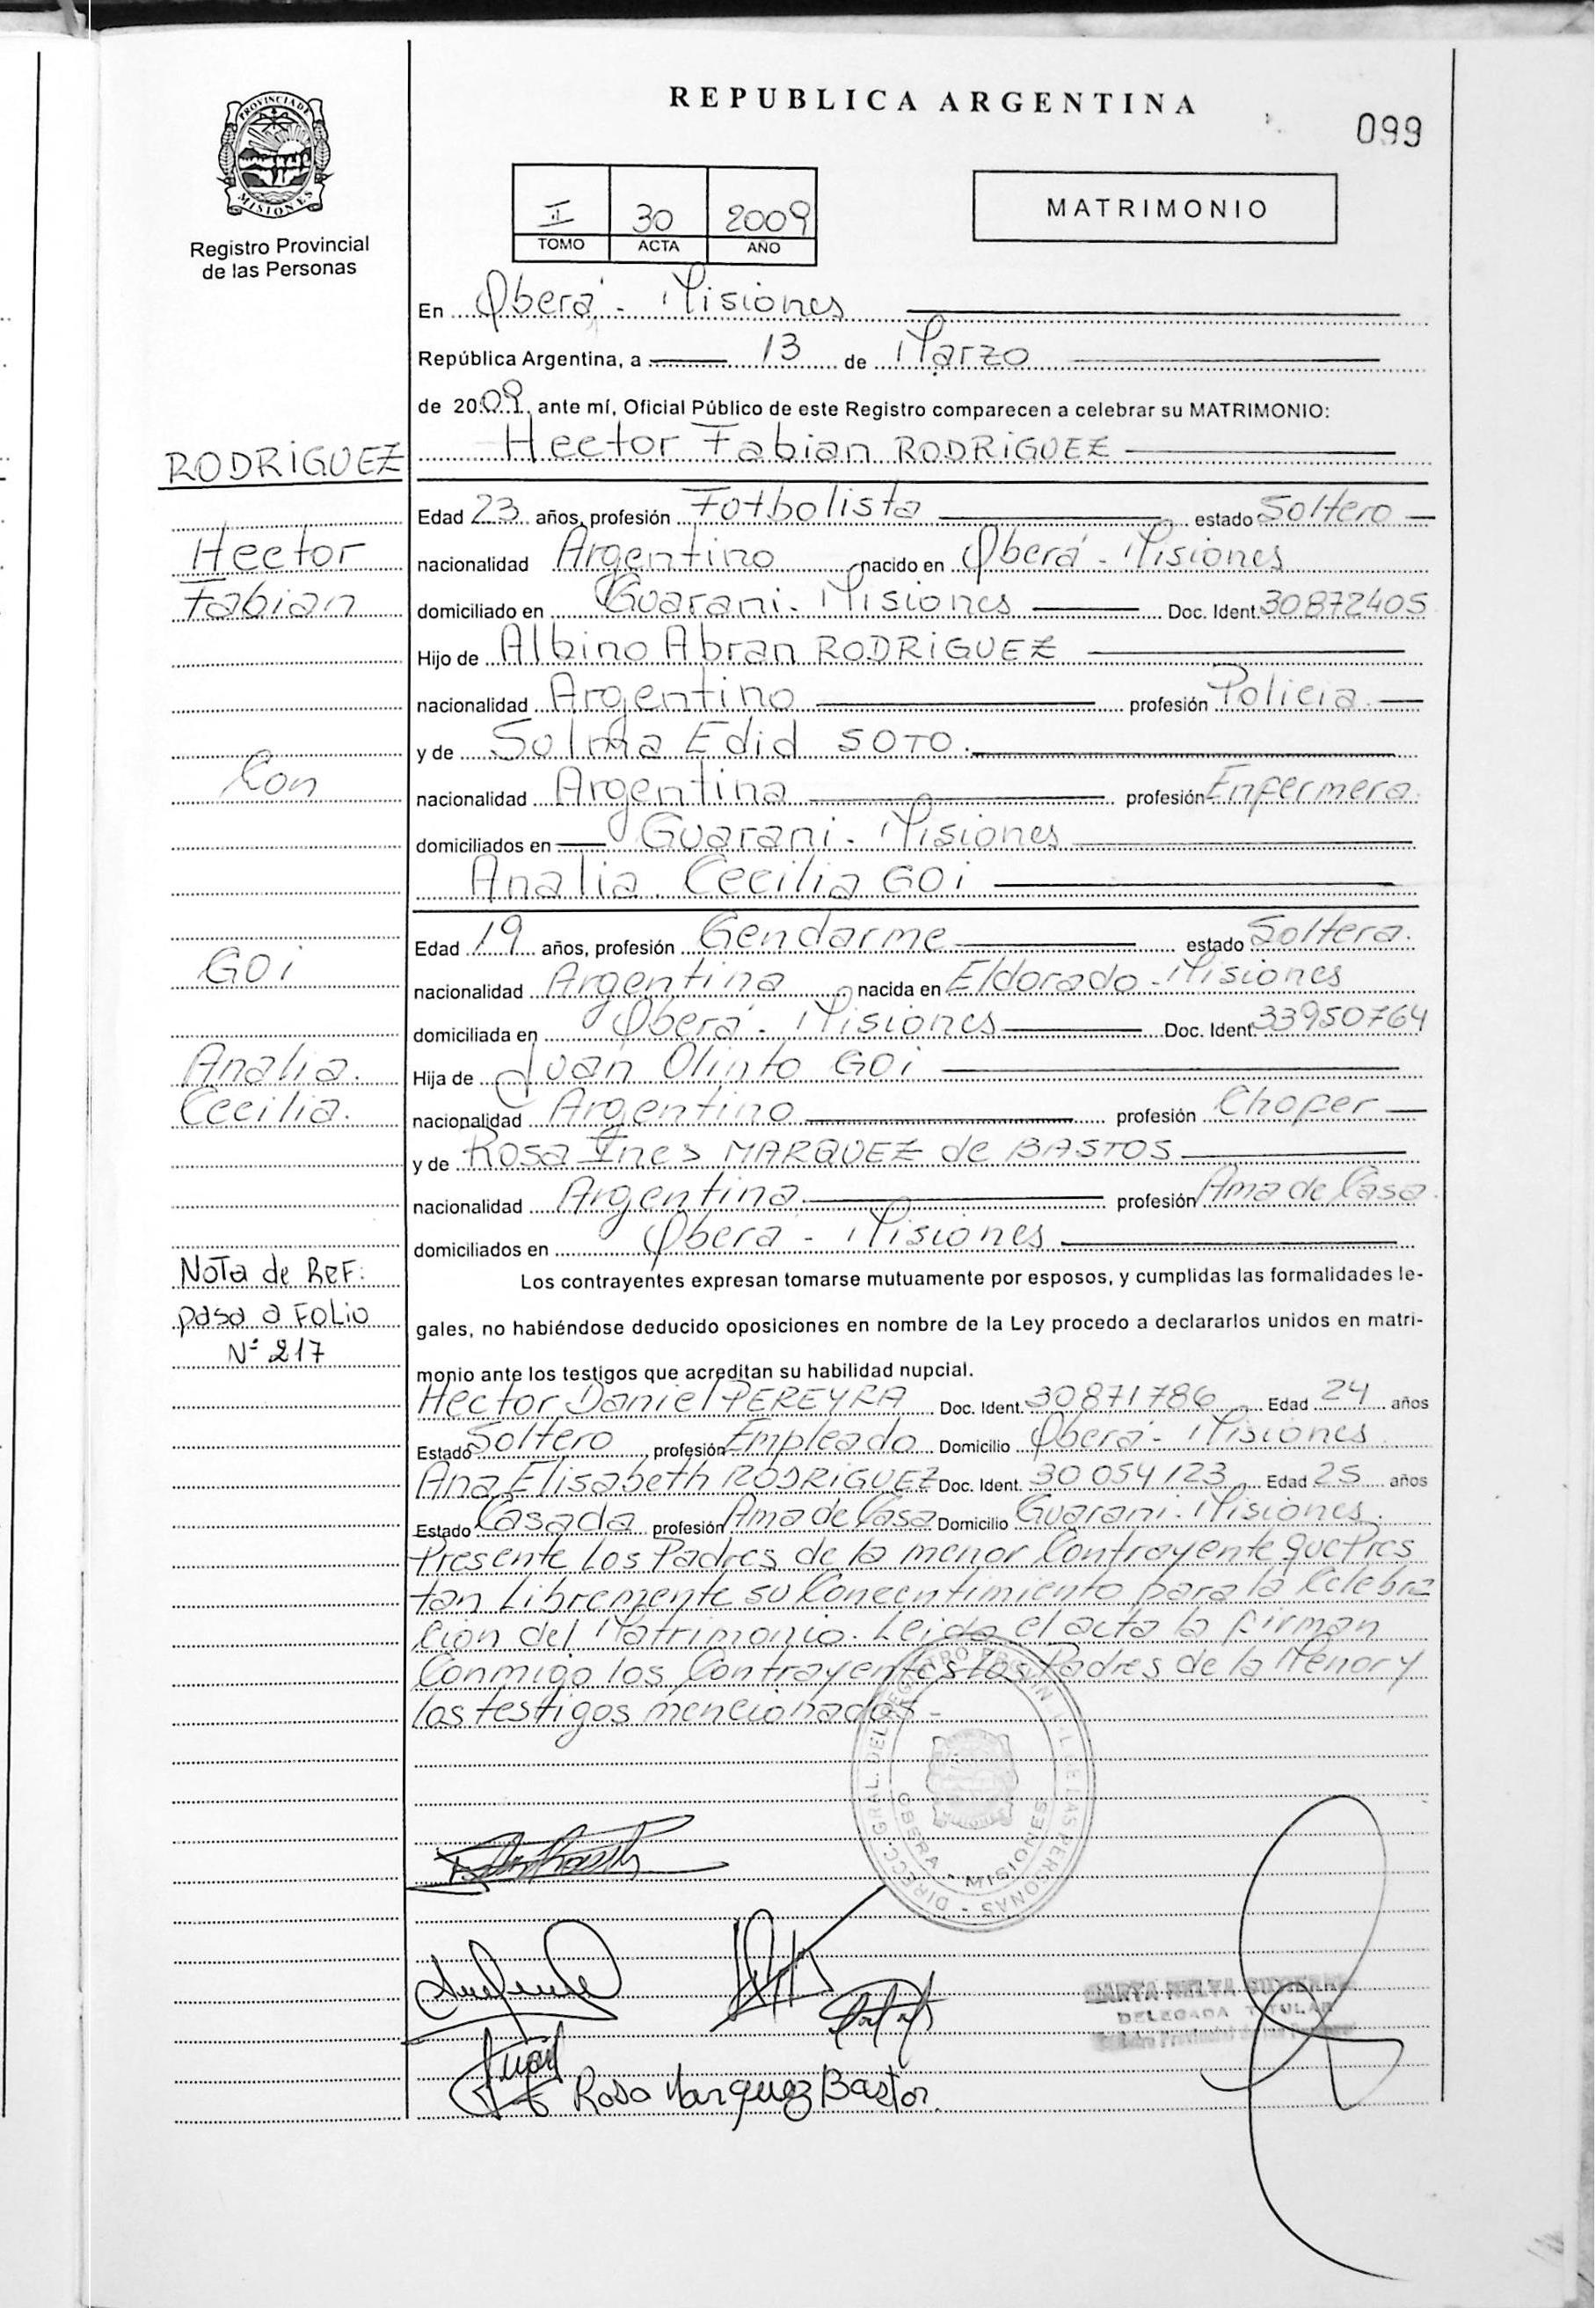 REPUBLICA ARGENTINA
099
PROVINCIA DE
MISIONES
Registro Provincial
de las Personas
II 30 2009
TOMO ACTA AÑO
MATRIMONIO
En Oberá - Misiones
República Argentina, a 13 de Marzo
de 2009, ante mí, Oficial Público de este Registro comparecen a celebrar su MATRIMONIO:
RODRIGUEZ
Hector Fabian RODRIGUEZ
Edad 23 años, profesión Fotbolista estado Soltero
Hector
nacionalidad Argentino nacido en Oberá - Misiones
Fabian
domiciliado en Guarani - Misiones Doc. Ident. 30872405
Hijo de Albino Abran RODRIGUEZ
nacionalidad Argentino profesión Policia
y de Solma Edid SOTO.
Con
nacionalidad Argentina profesión Enfermera
domiciliados en Guarani - Misiones
Analia Cecilia GOi
Edad 19 años, profesión Gendarme estado Soltera.
GOi
nacionalidad Argentina nacida en Eldorado - Misiones
domiciliada en Oberá - Misiones Doc. Ident. 33950764
Analia.
Hija de Juan Olinto GOi
Cecilia.
nacionalidad Argentino profesión Chofer
y de Rosa Ines MARQUEZ de BASTOS
nacionalidad Argentina profesión Ama de Casa.
domiciliados en Obera - Misiones
Nota de Ref:
Los contrayentes expresan tomarse mutuamente por esposos, y cumplidas las formalidades le-
pasa a Folio
gales, no habiéndose deducido oposiciones en nombre de la Ley procedo a declararlos unidos en matri-
N° 217
monio ante los testigos que acreditan su habilidad nupcial.
Hector Daniel PEREYRA Doc. Ident. 30871786 Edad 24 años
Estado Soltero profesión Empleado Domicilio Oberá - Misiones
Ana Elisabeth RODRIGUEZ Doc. Ident. 30054123 Edad 25 años
Estado Casada profesión Ama de Casa Domicilio Guarani - Misiones.
Presente Los Padres de la menor Contrayente que Pres
tan Libremente su Conecntimiento para la Celebra
cion del Matrimonio. Leida el acta la firman
Conmigo los Contrayentes Los Padres de la Menor y
los testigos mencionados -
DIRECC. GRAL. DEL REGISTRO PROVINCIAL DE LAS PERSONAS
OBERA - MISIONES
DELEGADA TITULAR
Juan
Rosa Marquez Bastor.